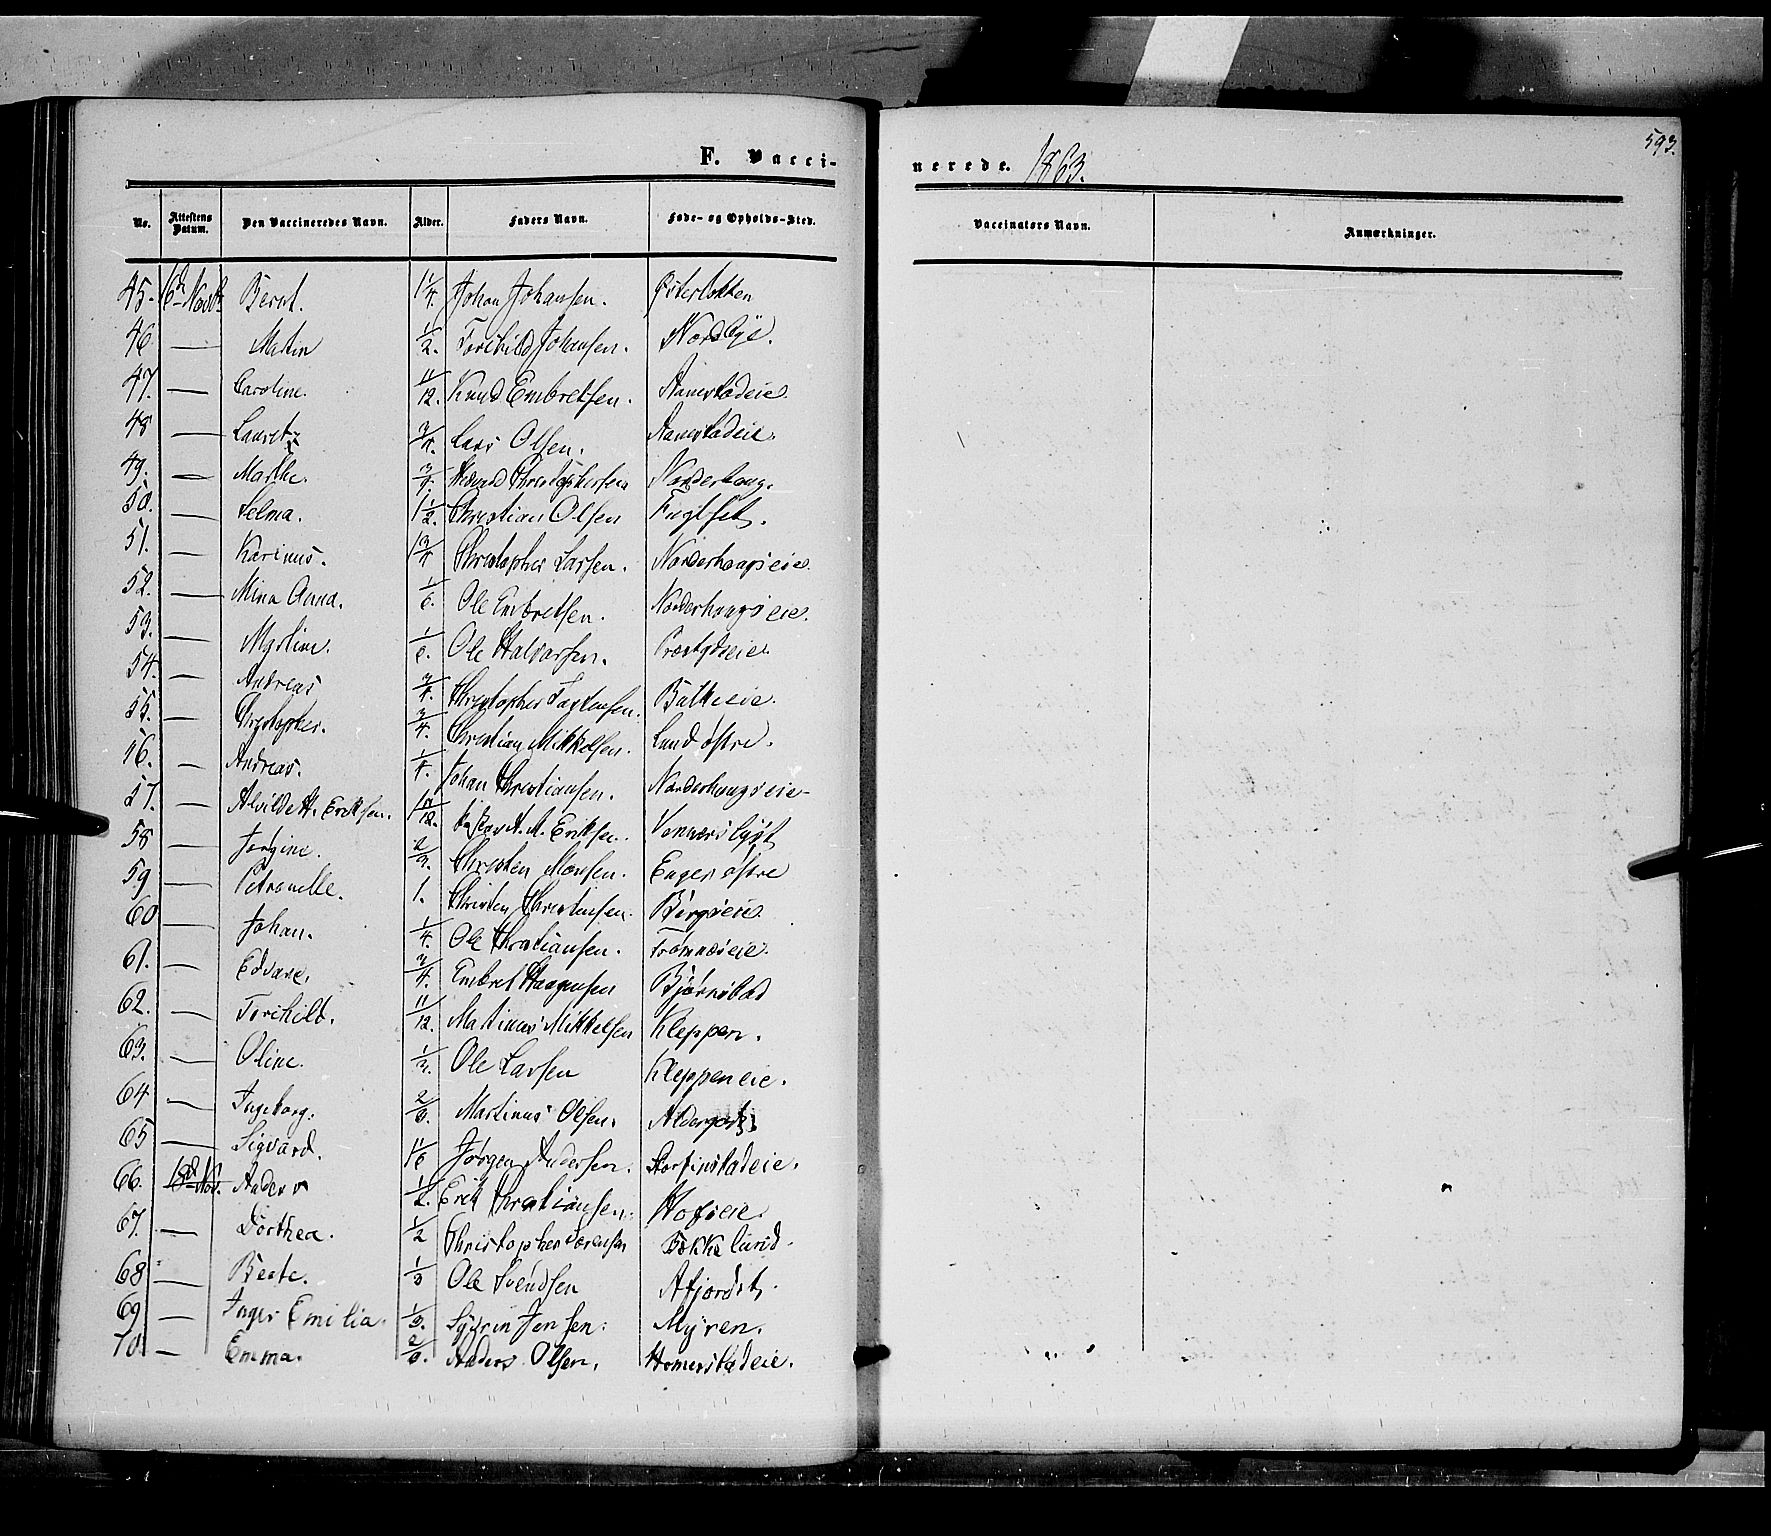 F. Vacci-
nerede. 1863.
593.
No. Attestens Datum. Den Vaccineredes Navn. Alder. Faders Navn. Føde- og Opholds-Sted.
Vaccinators Navn. Anmærkninger.
45. 6d Novbr Bernt. 1 1/4. Johan Johansen. Østerlokken
46 — Matin 1/2. Torchild Johansen. Nordbye.
47. — Caroline. 11/12. Knud Embretsen.
48 — Lauretz 3/4. Lars Olsen.
49. — Marthe. 3/4. Christophersen Norderhoug.
50. — Selma. 1 1/2. Christian Olsen Fuglset.
51. — Karinus. 1 3/4 Christopher Larsen. Norderhougseie.
52. — Mina Anna. 1/6. Ole Embretsen. Norderhougseie.
53. — Martine. 1/6. Ole Halvorsen. Præstgdseie
54. — Andreas 3/4. Christopher
55. — Christopher. 3/4. Christian Mikkelsen. Lund østre.
56. — Andreas. 1/4 Johan Christiansen. Norderhougseie-
57. — Alvilde H. Eriksen. 1 11/12. A. M. Eriksen. Vennerslyst
58 — Jørgine. 2/3. Christen Monsen. Enger østre
59 — Petronelle. 1. Christen Christensen. Bergseie.
60 — Johan. 1/4. Ole Christiansen.
61. — Edvard. 3/4. Embret Haagensen Bjørnstad
62. — Torchild. 11/12. Matinus Mikkelsen Kleppen.
63. — Oline. 1/3. Ole Larsen Kleppeneie.
64 — Ingeborg. 2/3. Martinus Olsen.
65 — Sigvard. 1 1/6 Jørgen Andersen.
66. 18d Nov. Anders 1/2. Erik Christiansen. Hofseie.
67. — Dorthea. 1/2 Christopher Sørensen Bækkelund.
68 — Beate. 1/3 Ole Svendsen
69 — Inger Emilia. 1/3. Jensen. Myren.
70. — Emma. 2/3. Anders Olsen. Homerstadeie.